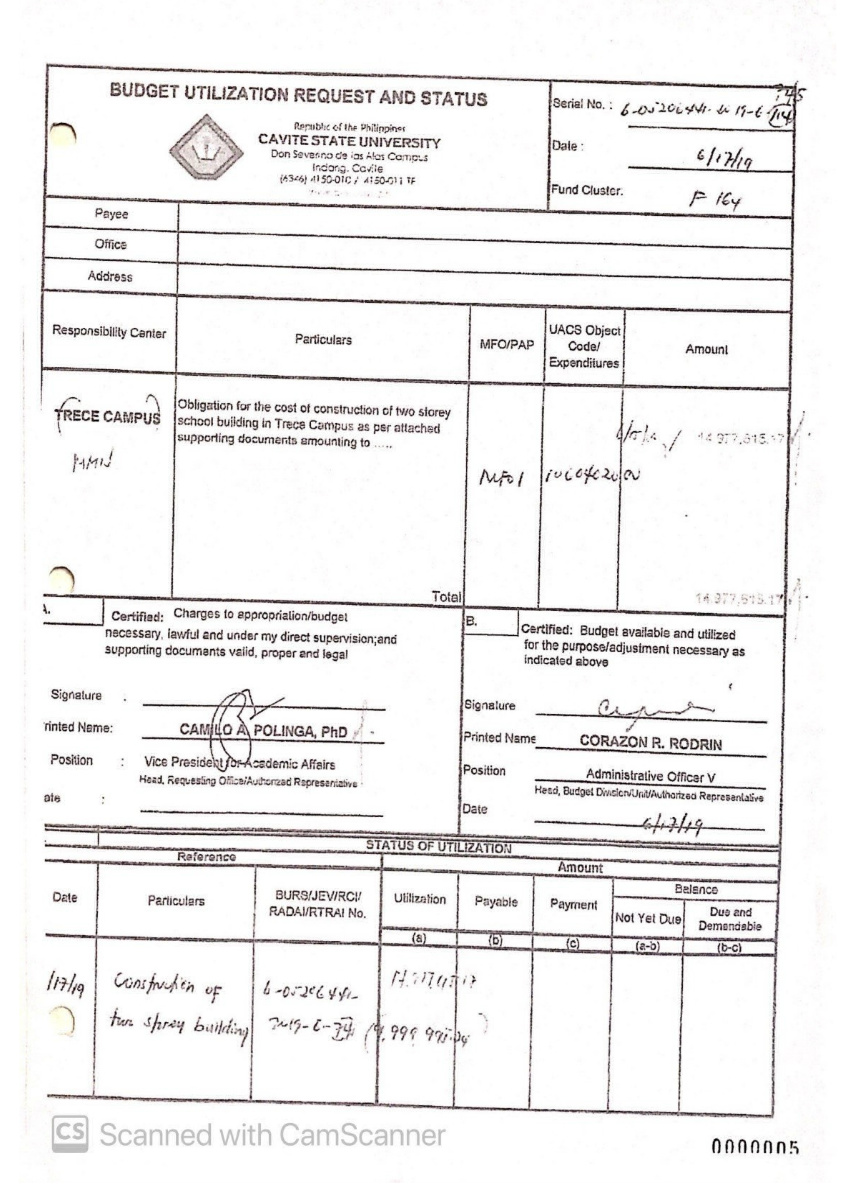 BUDGET UTILIZATION REQUEST AND STATUS
Republic of the Philippines
CAVITE STATE UNIVERSITY
Don Severino de las Alas Campus
Indang, Cavite
Serial No. :
Date : 6/17/19
Fund Cluster. F 164
Payee
Office
Address
Responsibility Center
Particulars
MFO/PAP
UACS Object
Code/
Expenditures
Amount
TRECE CAMPUS
Obligation for the cost of construction of two storey
school building in Trece Campus as per attached
supporting documents amounting to .....
14,977,615.17
MFO1
Total
14,977,615.17
A.
Certified: Charges to appropriation/budget
necessary, lawful and under my direct supervision;and
supporting documents valid, proper and legal
Signature :
rinted Name: CAMILO A. POLINGA, PhD
Position : Vice President for Academic Affairs
Head, Requesting Office/Authorized Representative
ate :
B.
Certified: Budget available and utilized
for the purpose/adjustment necessary as
indicated above
Signature
Printed Name CORAZON R. RODRIN
Position Administrative Officer V
Head, Budget Division/Unit/Authorized Representative
Date 6/17/19
STATUS OF UTILIZATION
Reference
Amount
Date
Particulars
BURS/JEV/RCI/
RADAI/RTRAI No.
Utilization
Payable
Payment
Balance
Not Yet Due
Due and
Demandable
(a)
(b)
(c)
(a-b)
(b-c)
/17/19
Construction of
two storey building
CS Scanned with CamScanner
0000005